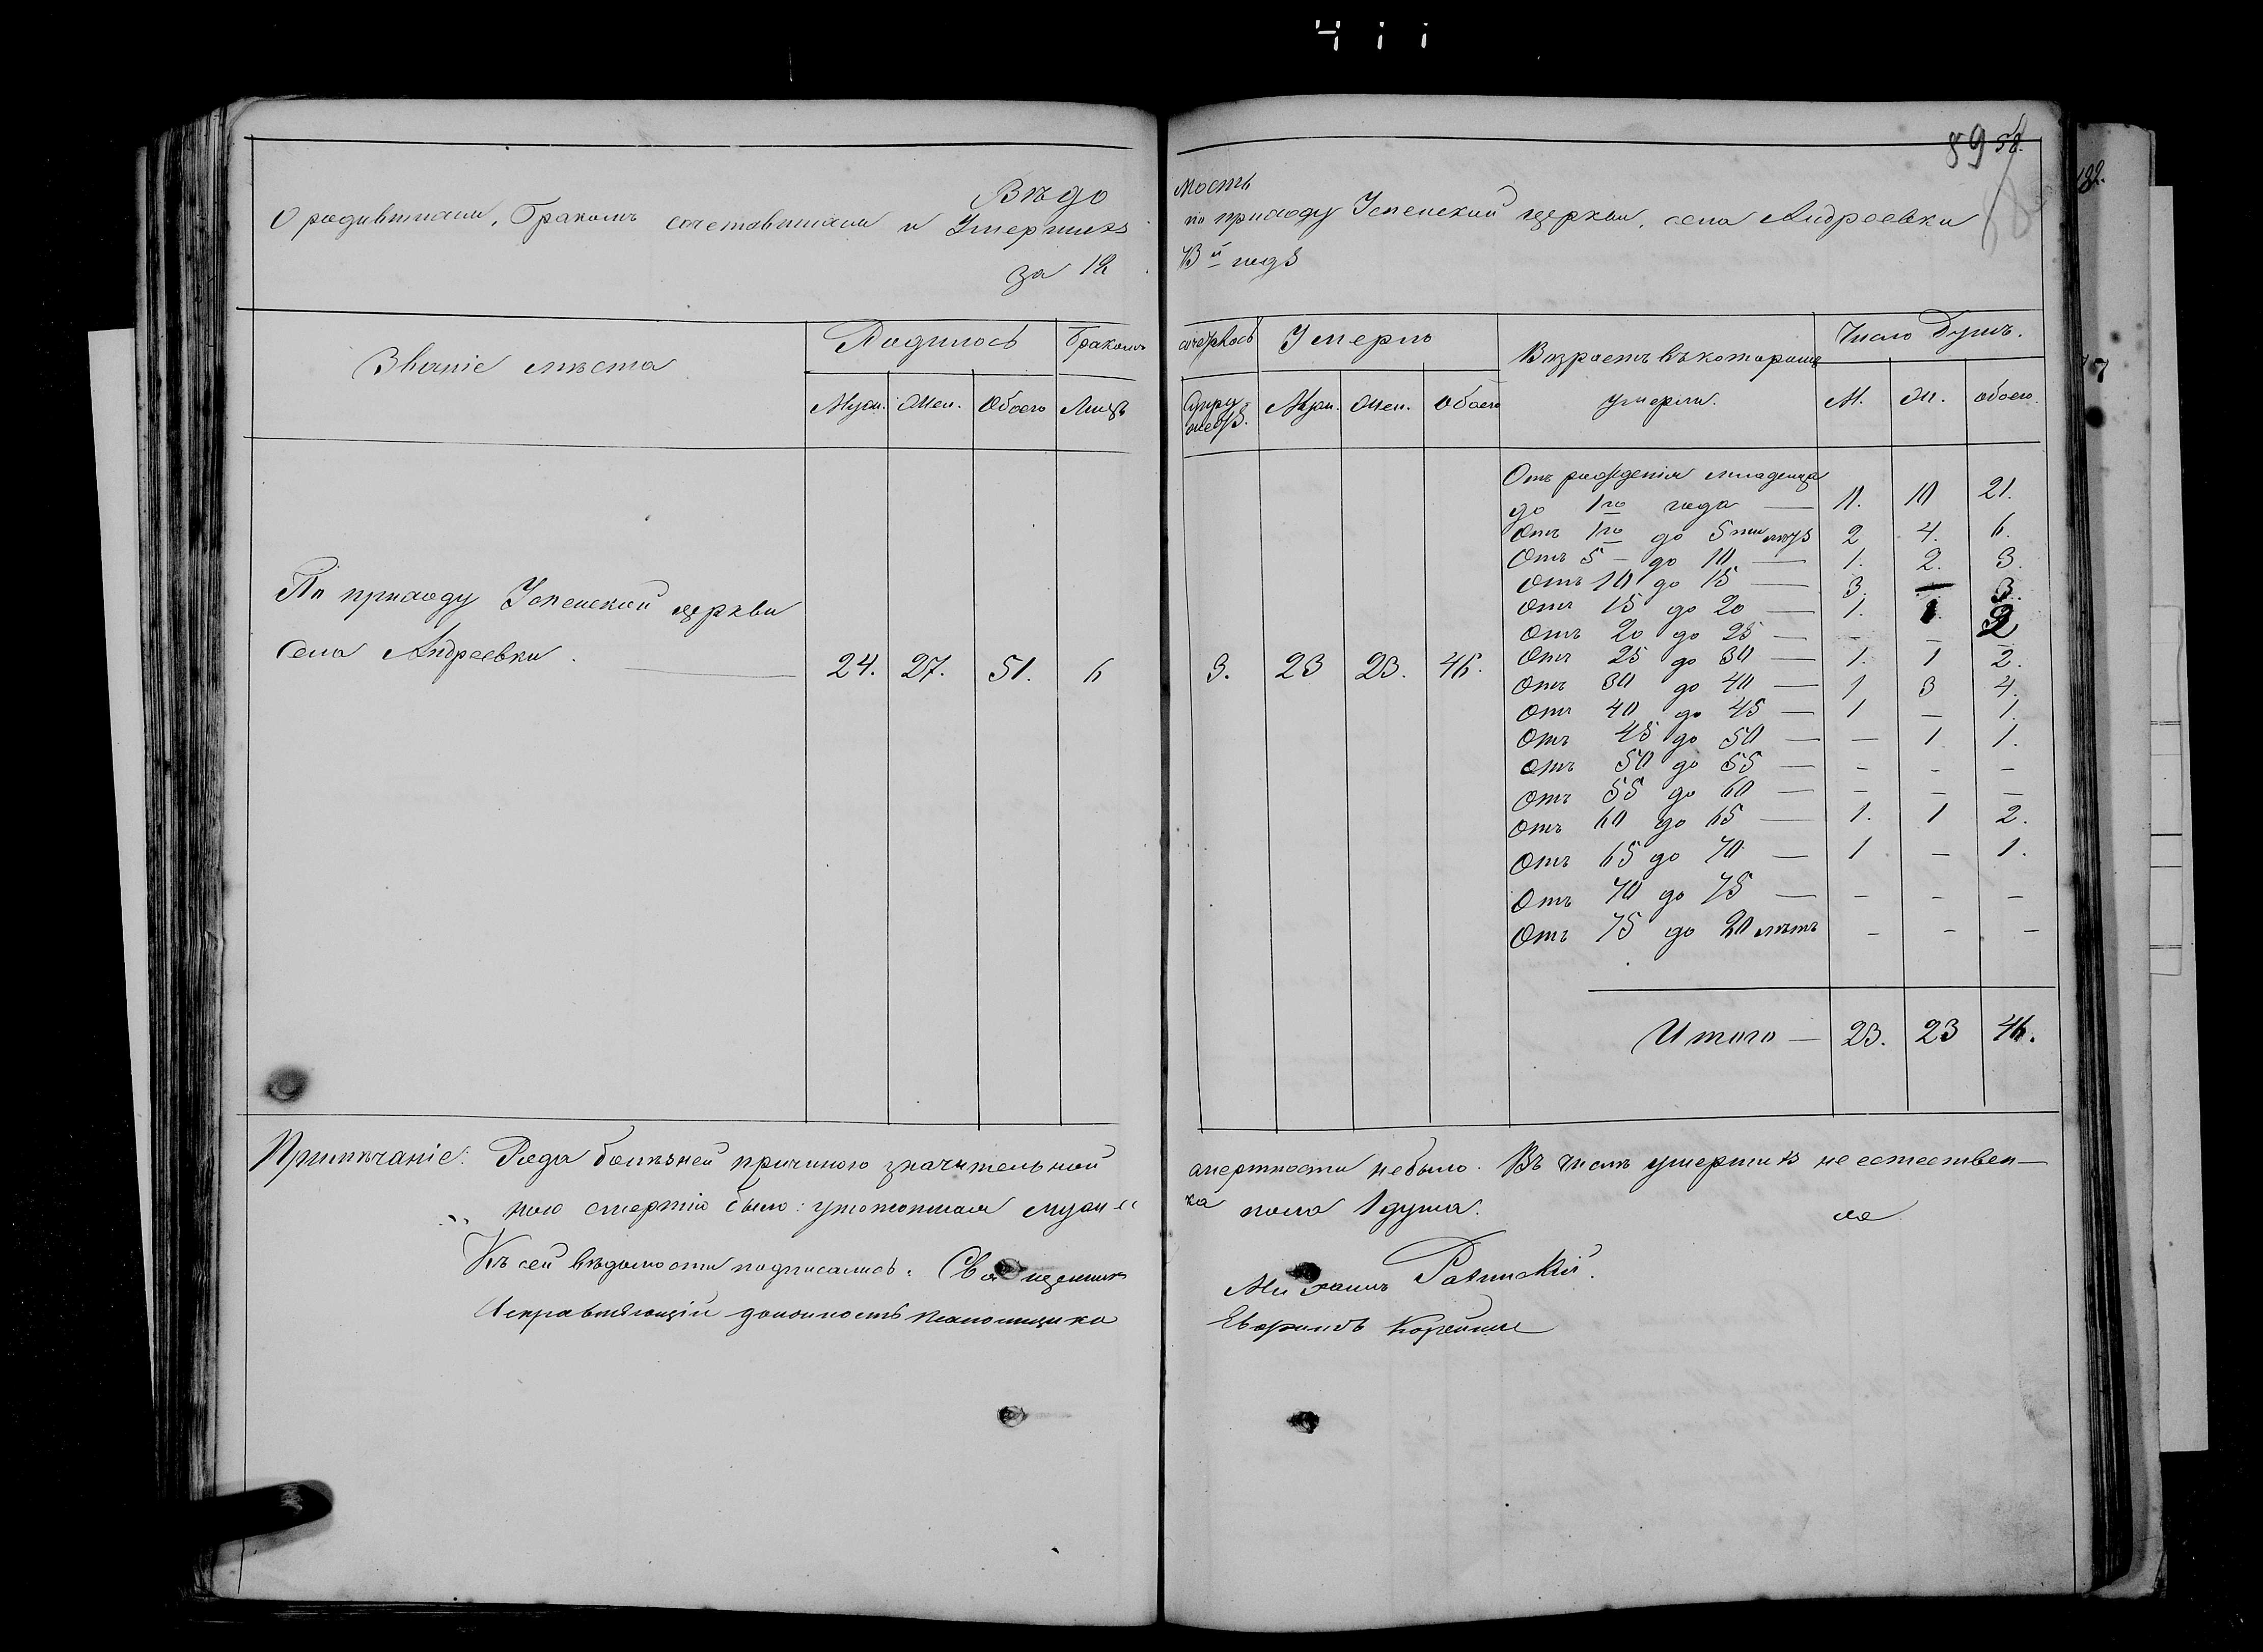 411
89
Вѣдо мость
О родившихся, бракомъ сочетавшихся и Умершихъ по приходу Успенской церкви, села Андреевки
за 18 73й годъ
Званіе мѣста
Родилось
Бракомъ сочеталось
Умерло
Возрастъ въ которомъ умерли.
Число Душъ.
Муж. Жен. Обоего Лицъ Супружествъ. Муж. Жен. Обоего М. Ж. обоего.
Отъ рожденія младенца
до 1го года — 11. 10 21.
Отъ 1го до 5ти лѣтъ 2 4. 6.
Отъ 5 — до 10 — 1. 2. 3.
Отъ 10 до 15 — 3. — 3.
Отъ 15 до 20 — 1. 1. 2
Отъ 20 до 25 — – – –
Отъ 25 до 30 — 1. 1 2.
Отъ 30 до 40 — 1 3 4.
Отъ 40 до 45 — 1 — 1.
Отъ 45 до 50 — — 1. 1.
Отъ 50 до 55 — – – –
Отъ 55 до 60 — – – –
Отъ 60 до 65 — 1. 1 2.
Отъ 65 до 70 — 1 — 1.
Отъ 70 до 75 — – – –
Отъ 75 до 80 лѣтъ – – –
По приходу Успенской церкви
Села Андреевки. — 24. 27. 51. 6 3. 23 23. 46.
Итого — 23. 23 46.
Примѣчаніе: Рода болѣзней причиною значительной смертности небыло. Въ числѣ умершихъ не естествен—
ною смертію было: утопшая мужеска пола 1 душа.
Къ сей вѣдомости подписались: Священникъ Михаилъ
Исправляющій должность псаломщика